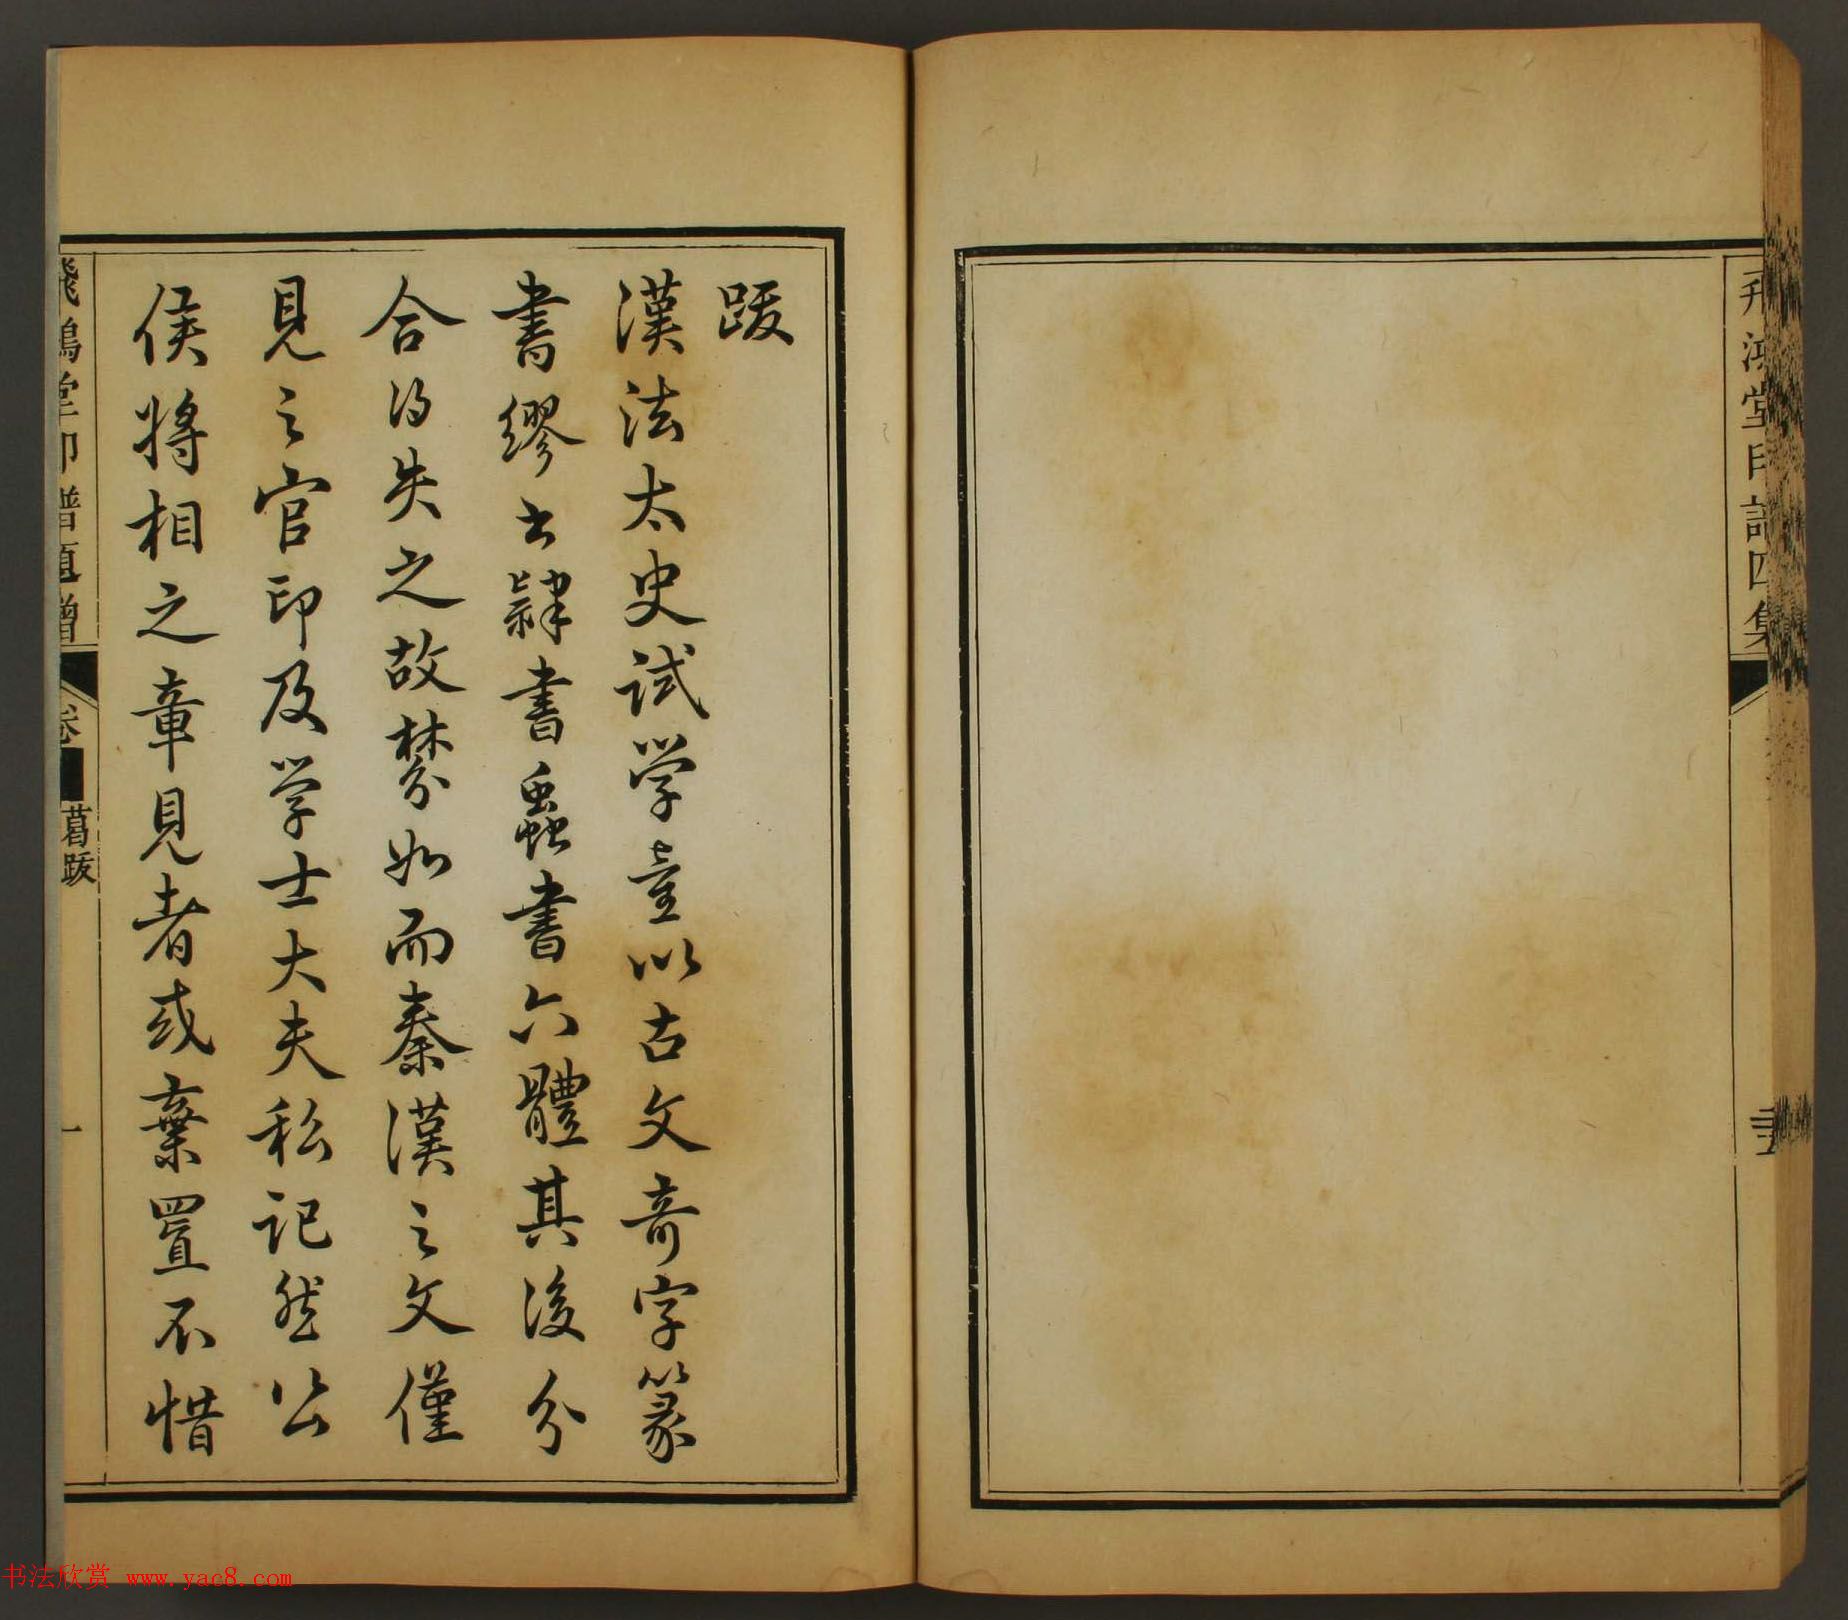 飛鴻堂印譜四集
跋
漢法太史試學童以古文奇字篆
書繆書隸書蟲書六體其後分
合得失之故棼如而秦漢之文僅
見之官印及學士大夫私記然公
侯將相之章見者或棄置不惜
飛鴻堂印譜題贈
卷
葛跋
一
书法欣赏 www.yac8.com